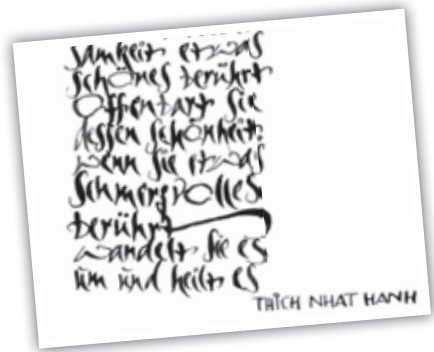 samkeit etwas
schönes berührt
offenbart sie
dessen schönheit.
wenn sie etwas
schmerzvolles
berührt
wandelt sie es
um und heilt es
THICH NHAT HANH